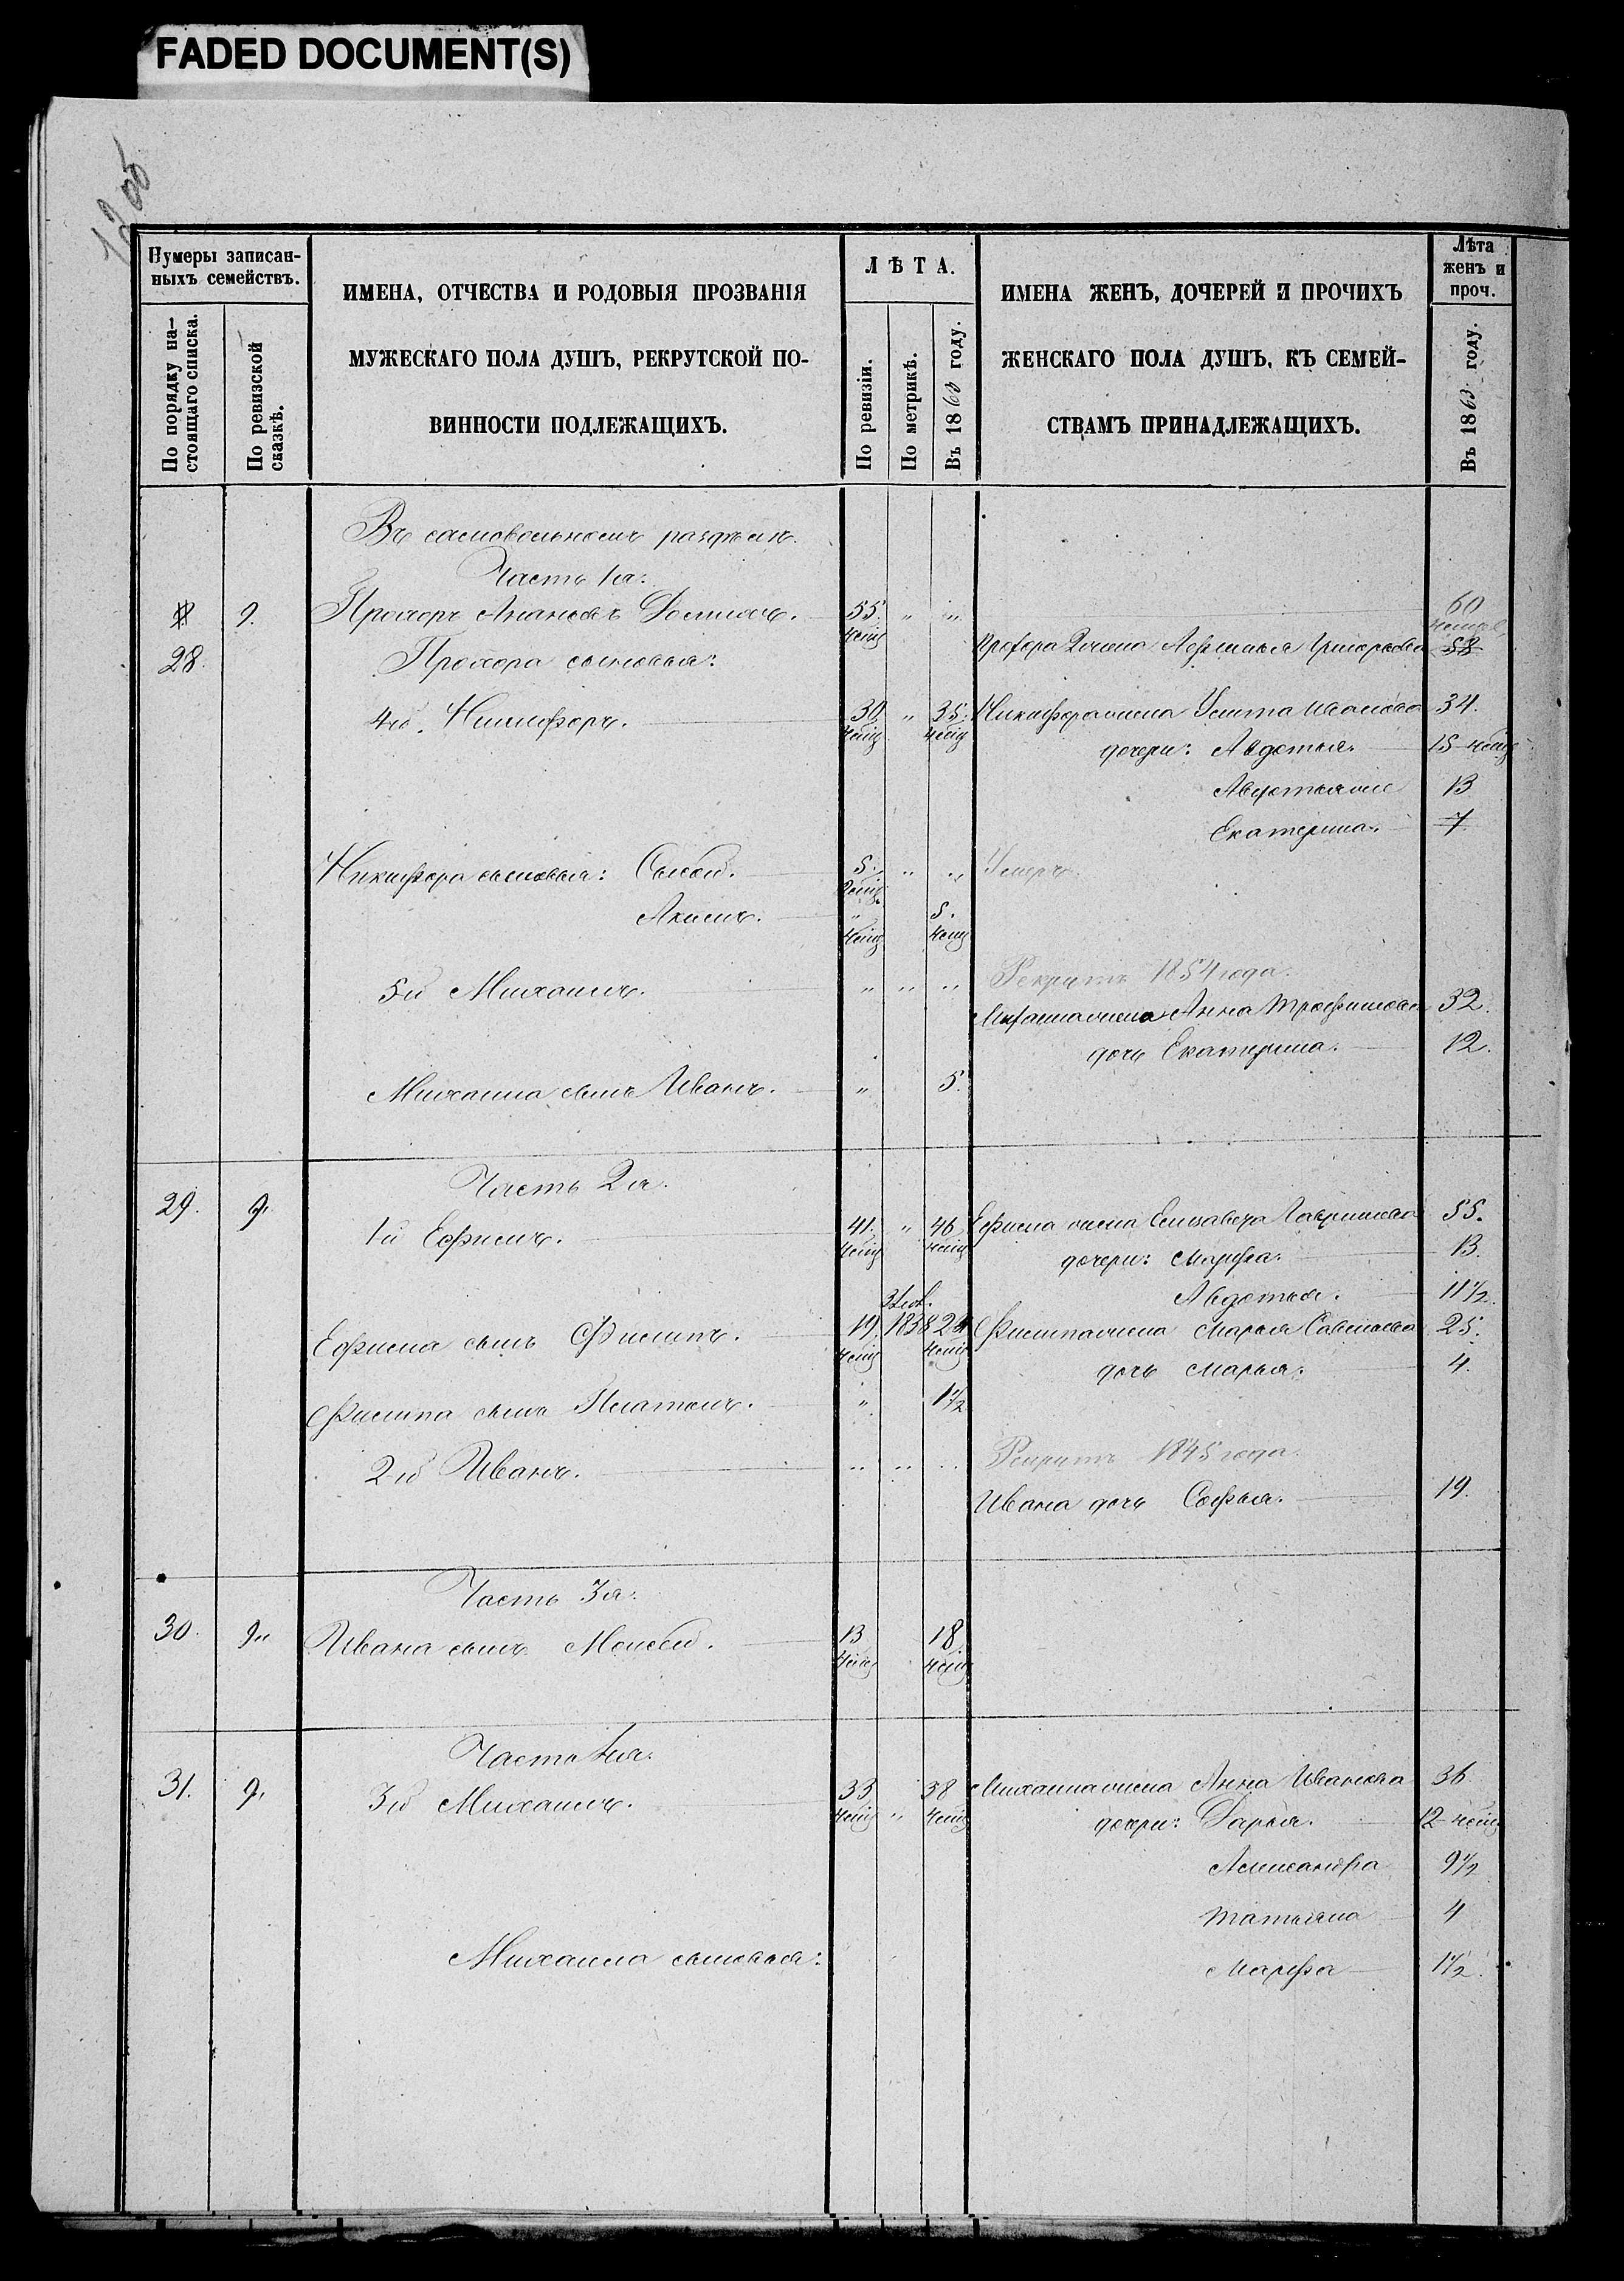 FADED DOCUMENT(S)
Нумеры записан-
ныхъ семействъ.
По порядку на-
стоящаго списка.
По ревизской
сказкѣ.
ИМЕНА, ОТЧЕСТВА И РОДОВЫЯ ПРОЗВАНІЯ
МУЖЕСКАГО ПОЛА ДУШЪ, РЕКРУТСКОЙ ПО-
ВИННОСТИ ПОДЛЕЖАЩИХЪ.
ЛѢТА.
По ревизіи.
По метрикѣ.
Въ 1863 году.
ИМЕНА ЖЕНЪ, ДОЧЕРЕЙ И ПРОЧИХЪ
ЖЕНСКАГО ПОЛА ДУШЪ, КЪ СЕМЕЙ-
СТВАМЪ ПРИНАДЛЕЖАЩИХЪ.
Лѣта
женъ и
проч.
Въ 1863 году.
Въ самовольномъ раздѣлѣ.
Часть 1я:
9. Прохоръ Ананьевъ 55. " " 60
28. Прохора сыновья: Прохора жена Григорьева 58
4й. Никифоръ. 30 " 35. Никифора жена 34.
дочери: Авдотья. 15
Авдотья же 13
Екатерина. 7
Никифора сыновья: 5. " " Умеръ.
Акимъ. " 5.
5й Михаилъ. " " " Рекрутъ 1854 года.
Михаила жена Анна Трофимова 32.
дочь Екатерина. 12.
Михаила сынъ Иванъ. " 5.
Часть 2я.
29. 9. 1й Ефимъ. 41. " 46 Ефима жена Елизавета Гаврилова 55.
дочери: Марфа. 13.
Авдотья. 11½.
Ефима сынъ Филипъ. 19. 1838 24 Филипа жена Марья Савельева 25.
дочь Марья. 4.
Филипа сынъ Платонъ. " 1½
2й Иванъ. " " " Рекрутъ 1845 года.
Ивана дочь Софья. 19.
Часть 3я.
30. 9. Ивана сынъ Моисей. 13 18
Часть 4я.
31. 9. 3й Михаилъ. 33 " 38 Михаила жена Анна Иванова 36.
дочери: Дарья. 12
Александра 9½
Татьяна 4
Михаила сыновья: Марфа 1½.